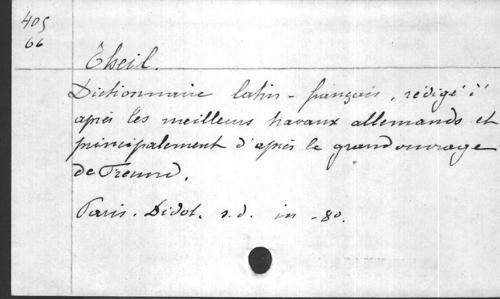 405
66
Theil.
Dictionnaire latin-français, rédigé d'
après les meilleurs travaux allemands et
principalement d'après le grand ouvrage
de Freund.
Paris. Didot. s.d. in-80.